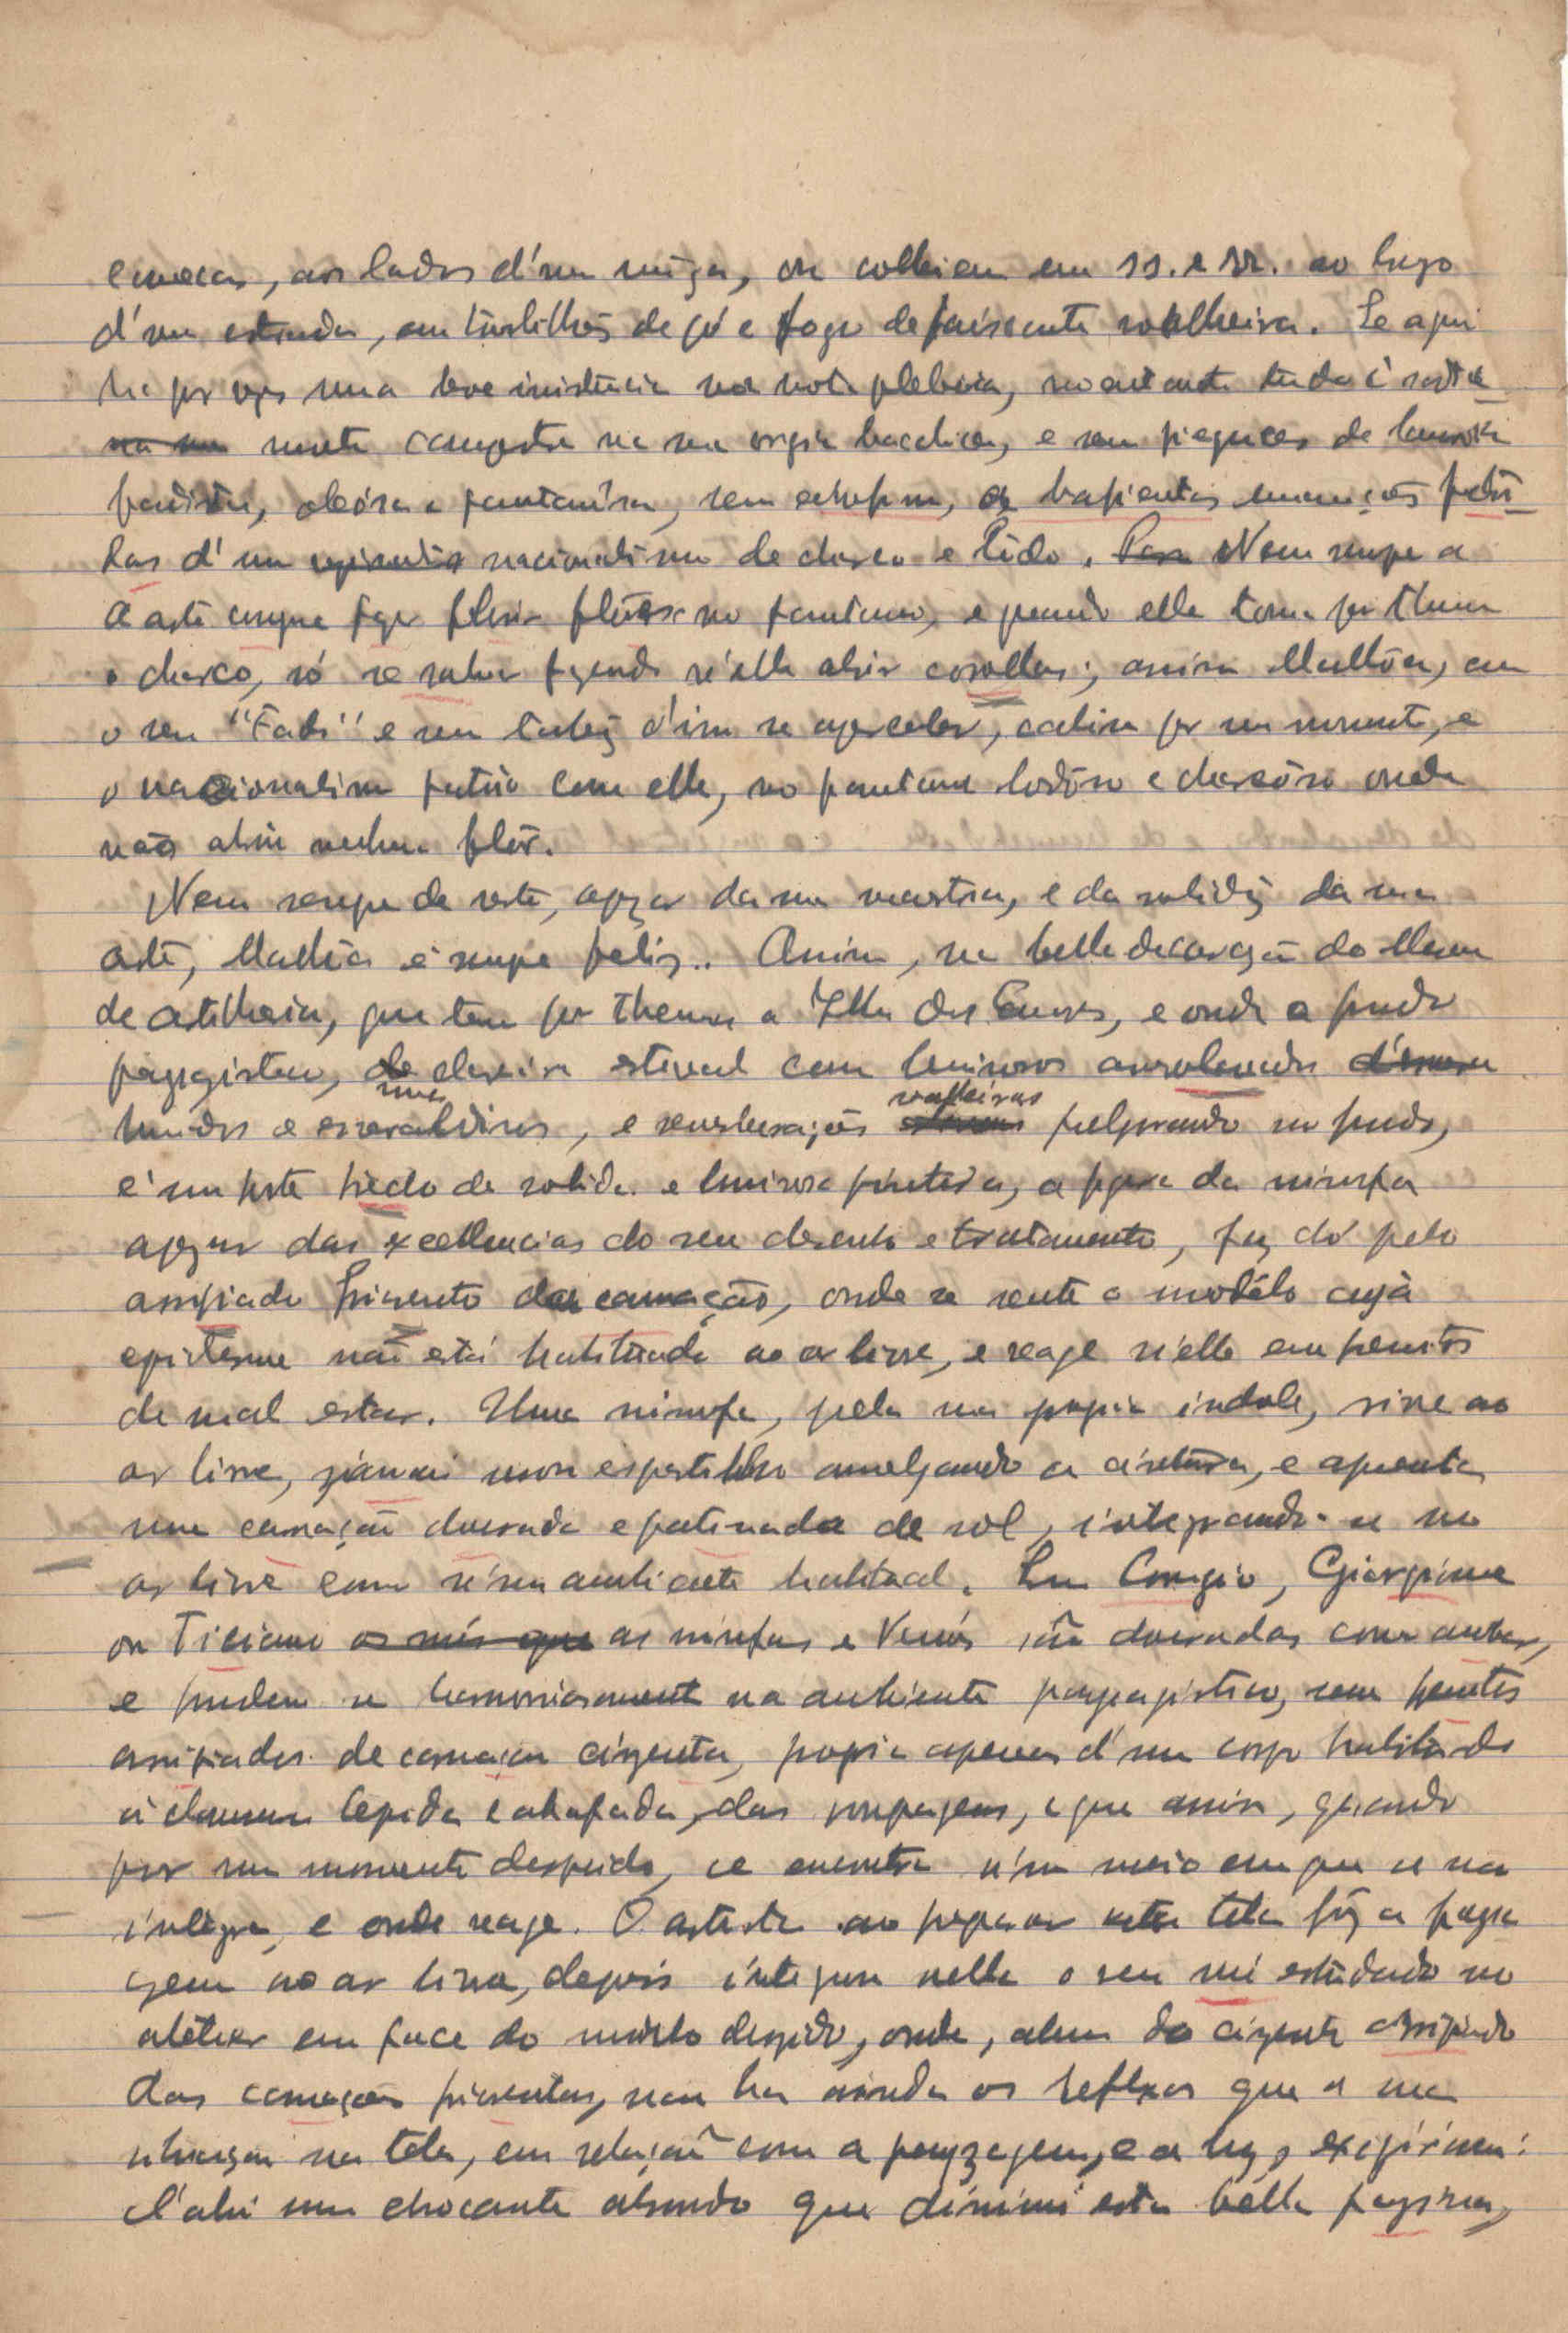 emocas, aos lados d'um muza, ou colleiam em ss. e rr. ao longo
d'uma estrada, em turbilhões de pó e fogo de faiscante soalheira. Se aqui
ha por vezes uma leve insistencia na nota plebeia, no entanto tudo é sadia
mente campestre na sua orgia bacchica, e sem pieguices de
fadista, oleósa e pantanósa, sem, as emanações féti
das d'um nacionalismo de charco e lôdo. Nem sempre a
a arte consegue fazer florir flôres no pantano, e quando ella toma por thema
o charco, só se salva fazendo n'elle abrir corollas; assim Malhôa, em
o seu "Fado" e sem talvez d'isso se aperceber, cahiu por um momento, e
o nacionalismo patrio com elle, no pantano lodôso e charcôso onde
não abriu nenhuma flôr.
Nem sempre de resto, apezar da sua mestria, e da solidez da sua
arte, Malhôa é sempre feliz.. Assim, na bella decoração do Museu
de artilharia, que tem por thema a Ilha dos Amores, e onde o fundo
paysagistico, de clareira estival com luminosos
humidos e esmeraldinos, e reverberações soalheiras fulgurando no fundo,
é um forte trecho de solida e luminosa pintura, a figura da nimfa
apezar das excellencias do seu desenho e tratamento, faz dó pelo
arripiado friorento da carnação, onde se sente o modêlo cuja
epiderme não está habituada ao ar livre, e reage n'elle em fremitos
de mal estar. Uma nimfa, pela sua propria indole, vive ao
ar livre, jámais usou espartilho amolgando a cintura, e apresenta
uma carnação dourada e patinada de sol, integrando-se no
ar livre como n'um ambiente habitual. Em Corregio, Giorgione
ou Ticiano as nimfas e Venús são douradas como ambar,
e fundem se harmoniosamente na ambiente paysagistico, sem fremitos
arripiados de carnação cinzenta, propria apenas d'um corpo habituado
á clausura tepida e abafada, das roupagens, e que assim, quando
por um momento despido, se encontra n'um meio em que se não
integra, e onde reage. O artista ao preparar esta tela fez a paysa
gem ao ar livre, depois integrou nella o seu nú estudado no
atelier em face do modelo despido, onde, alem do cinzento arripiado
das carnações friorentas, nem ha ainda os reflexos que a sua
situação na tela, em relação com a payzagem, e a luz, exigiriam:
d'ahi um chocante absurdo que diminui esta bella pagina,